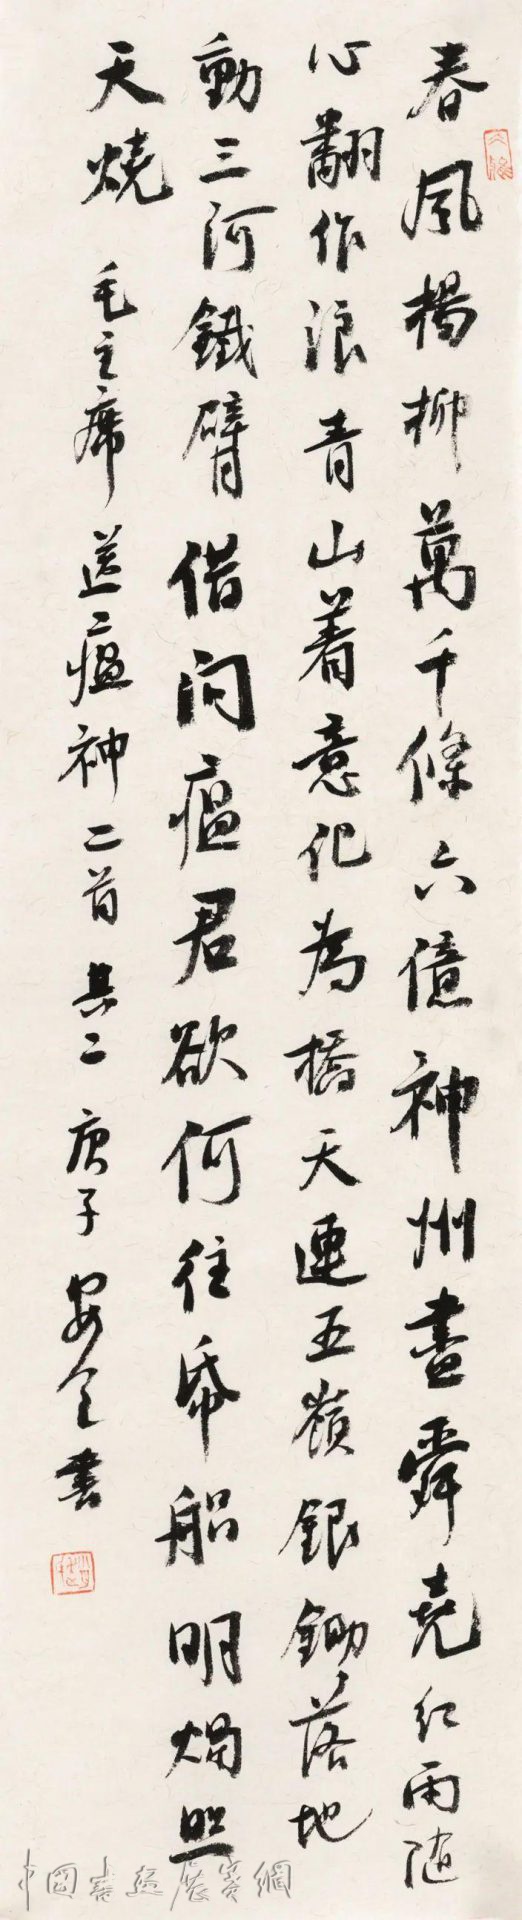 春風楊柳萬千條六億神州盡舜堯红雨随
心翻作浪青山着意化為橋天連五嶺銀鋤落地
動三河鐵臂借问瘟君欲何往帋船明燭照
天燒 毛主席送瘟神二首其二 庚子 書
中国書畫展賽網